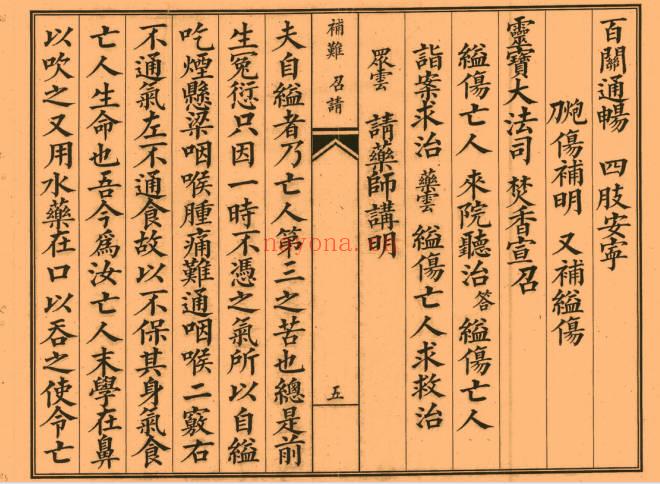 百關通暢　四肢安寧
刀炮傷補明　又補縊傷
靈寶大法司　焚香宣召
縊傷亡人　來院聽治　答　縊傷亡人
詣案求治　藥雲　縊傷亡人求救治
眾雲　請藥師講明
補難　召請
五
夫自縊者乃亡人第三之苦也總是前
生冤愆只因一時不憑之氣所以自縊
吃煙懸梁咽喉腫痛難通咽喉二竅右
不通氣左不通食故以不保其身氣食
亡人生命也吾今為汝亡人末學在鼻
以吹之又用水藥在口以吞之使令亡